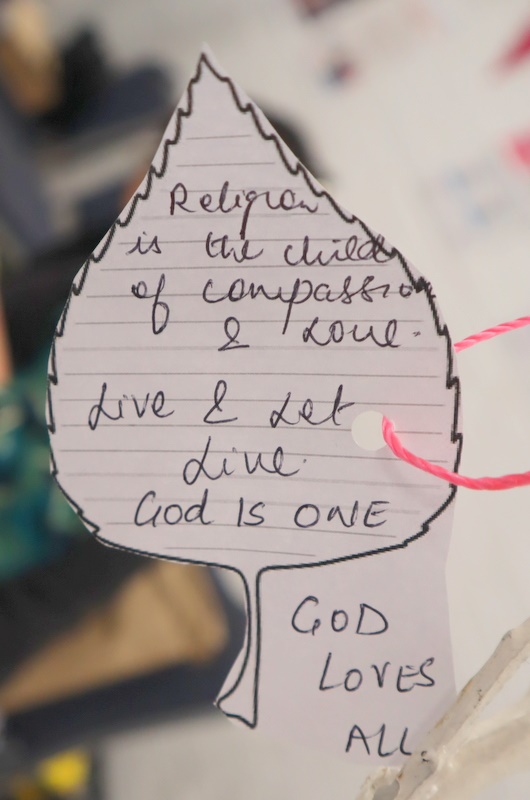 Religion
is the child
of compassion
& Love.
Live & Let
Live.
God IS ONE
GOD
LOVES
ALL.